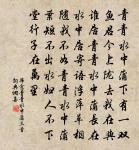 青青水中蒲下有一雙
魚君今上隴去我在與
誰居青青水中蒲長在
水中居寄語浮萍草相
隨我不如青青水中蒲
葉短不出水婦人不下
堂行子在萬里
青青水中蒲三首